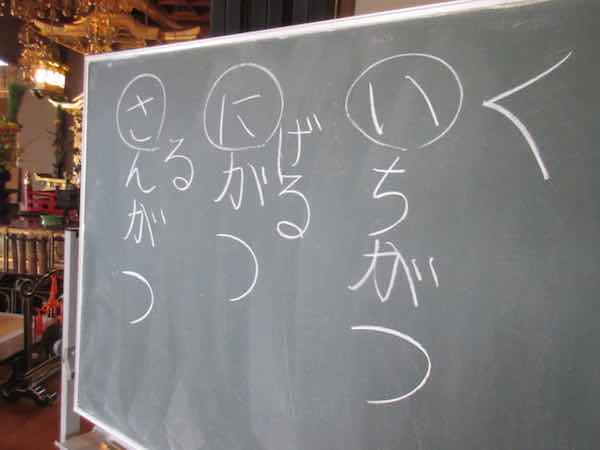 く
いちがつ
げる
にがつ
る
さんがつ